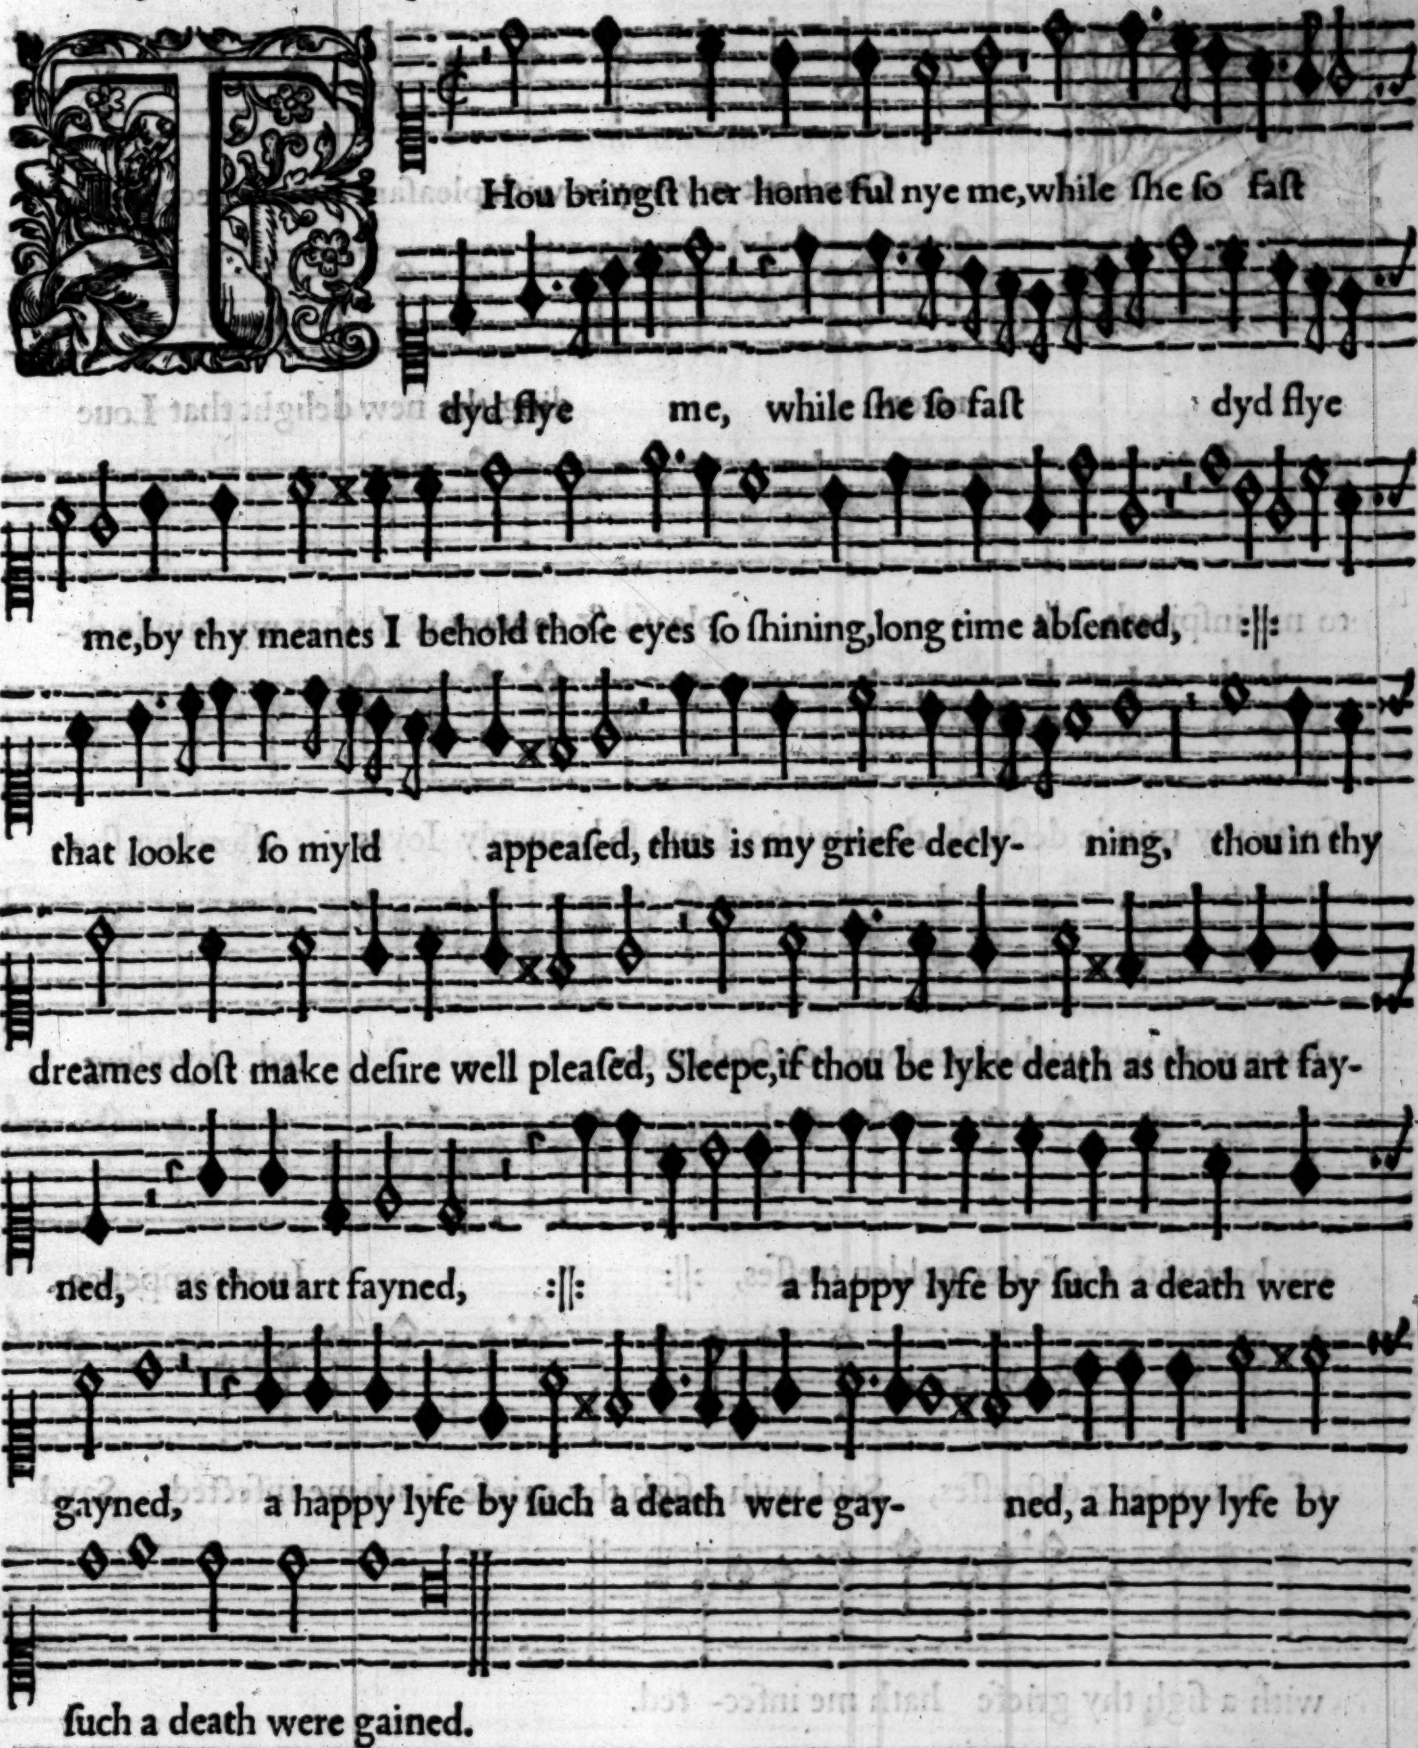 THou bringſt her home ful nye me,while ſhe ſo faſt
dyd flye me, while ſhe ſo faſt dyd flye
me,by thy meanes I behold thoſe eyes ſo ſhining,long time abſented, :||:
that looke ſo myld appeaſed, thus is my griefe decly- ning, thou in thy
dreames doſt make deſire well pleaſed, Sleepe,if thou be lyke death as thou art fay-
ned, as thou art fayned, :||: a happy lyfe by ſuch a death were
gayned, a happy lyfe by ſuch a death were gay- ned, a happy lyfe by
ſuch a death were gained.